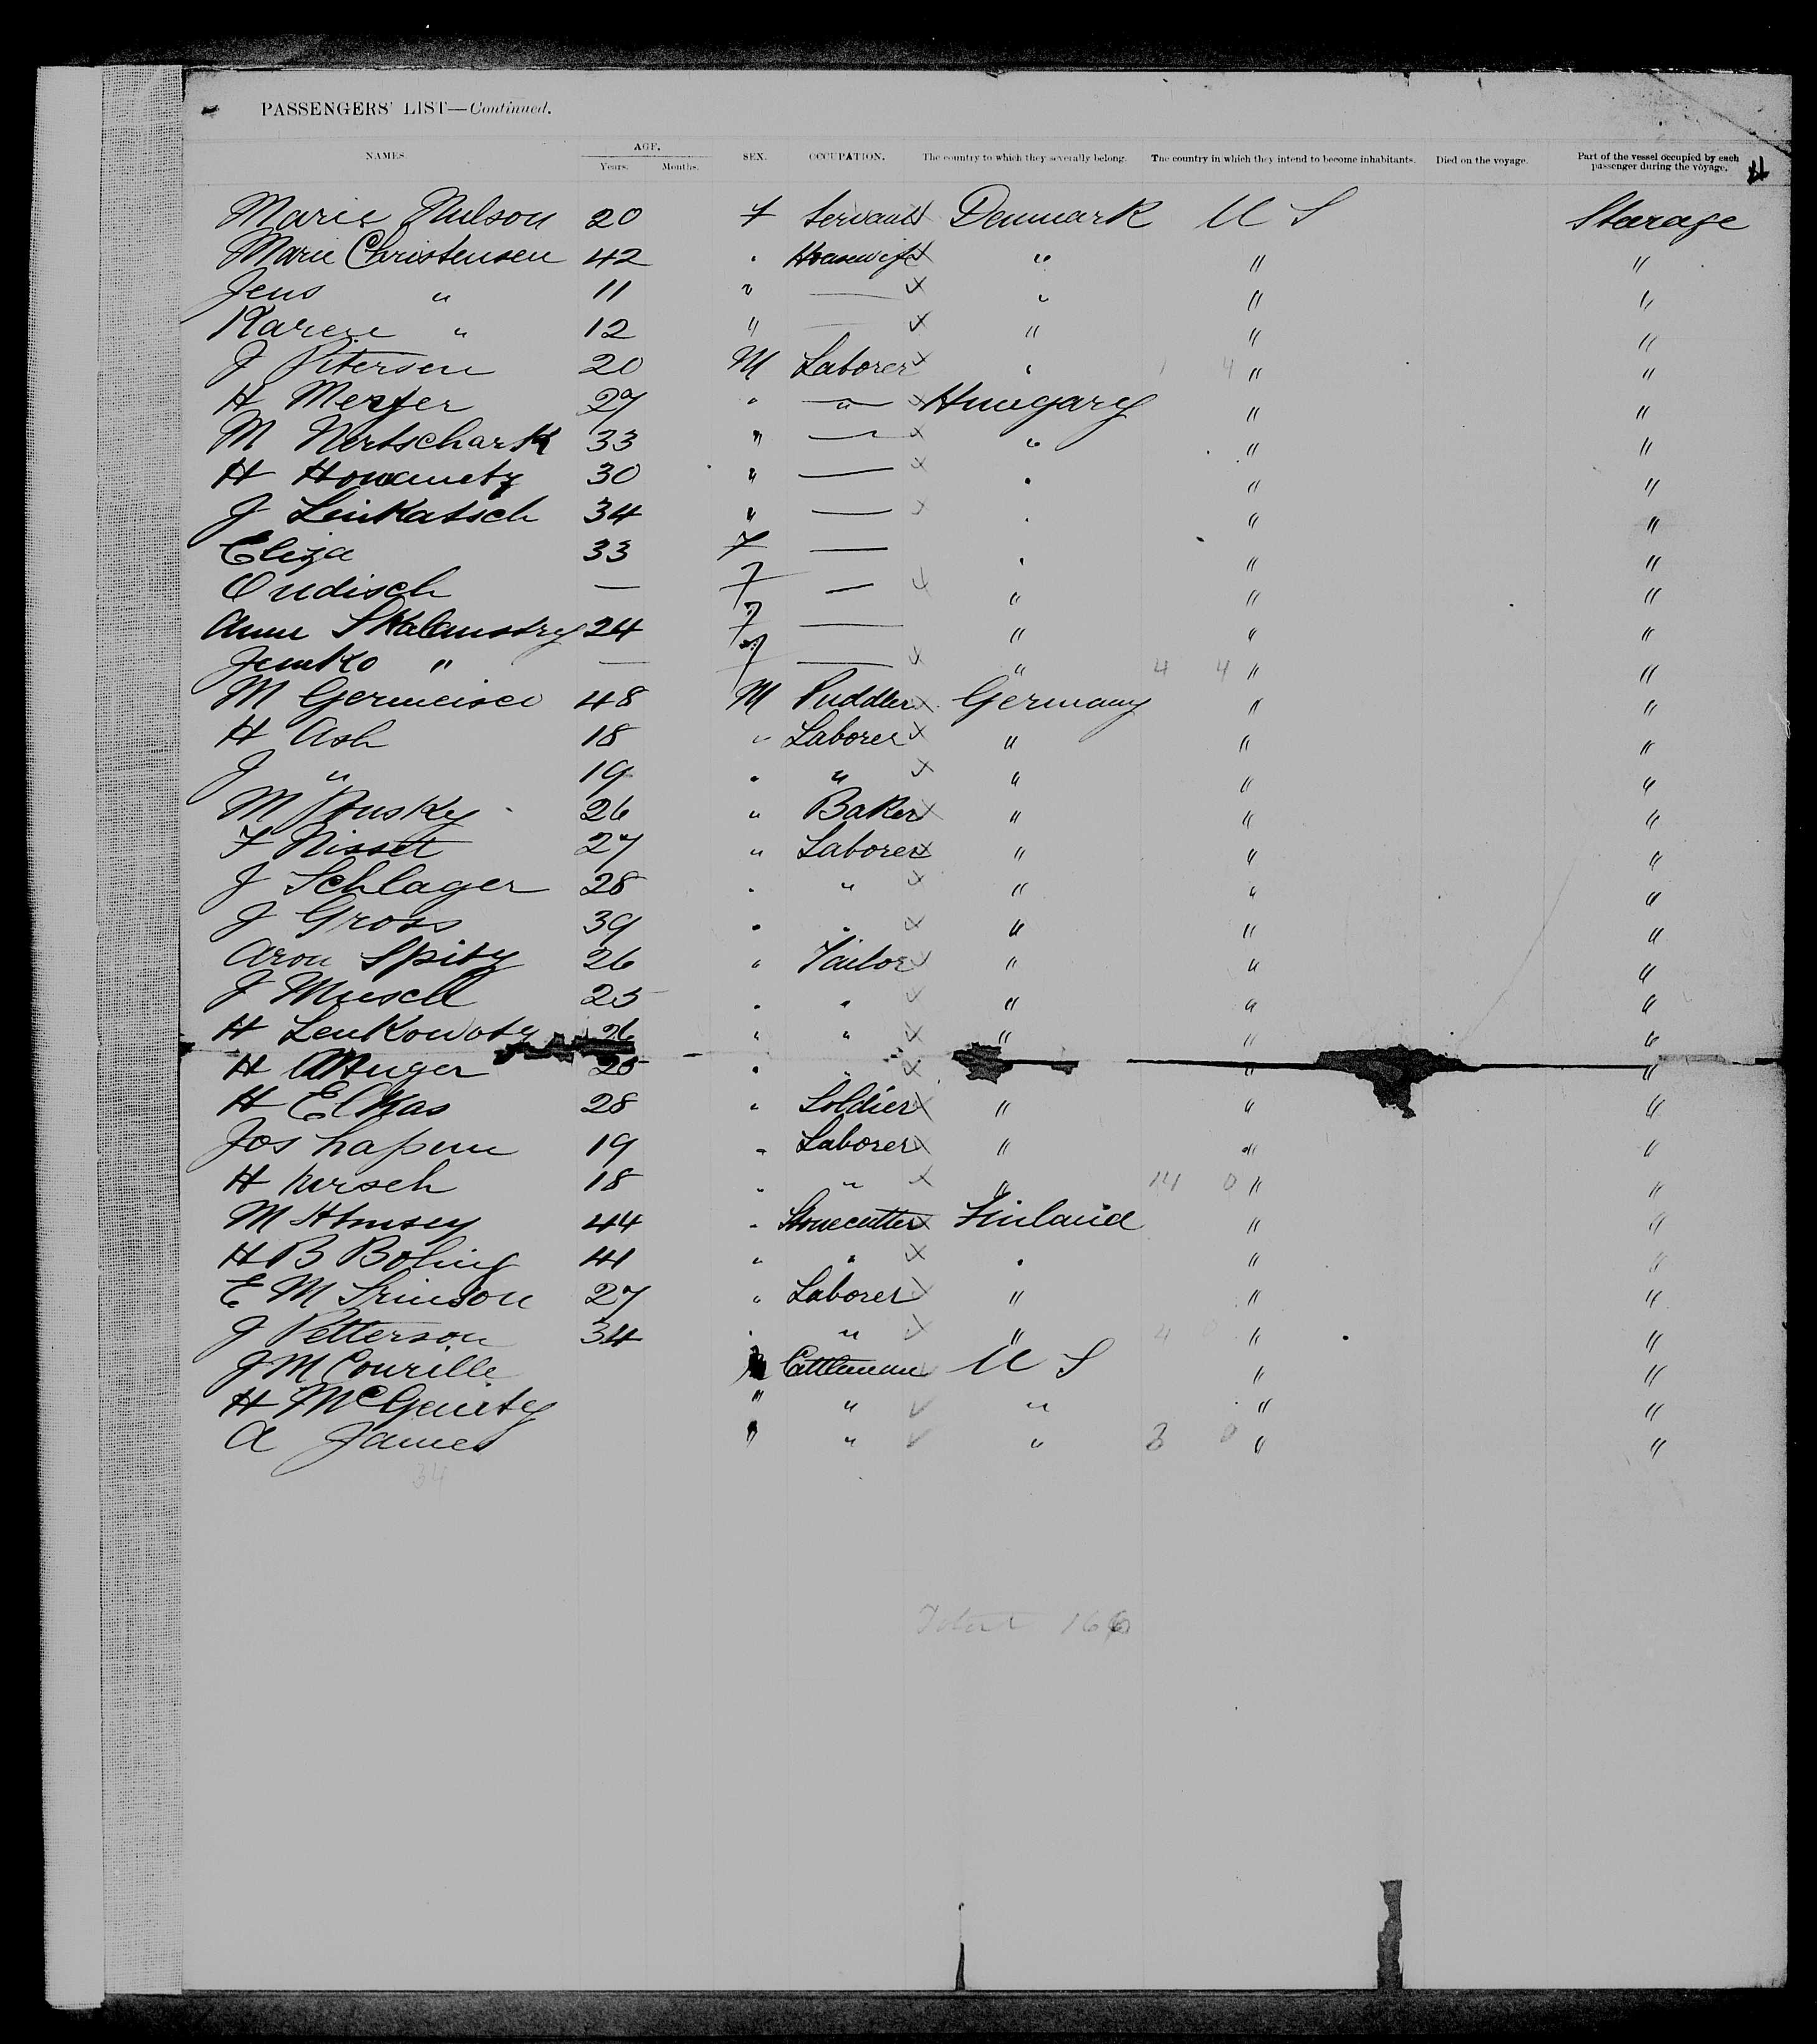 PASSENGERS' LIST—Continued.
NAMES. AGE. Years. Months. SEX. OCCUPATION. The country to which they severally belong. The country in which they intend to become inhabitants. Died on the voyage. Part of the vessel occupied by each passenger during the voyage.
4
Marie Nulson 20 F Servant Denmark U S Starage
Marie Christensen 42 " Housewife " " "
Jens " 11 " — " " "
Karene " 12 " — " " "
J Petersen 20 M Laborer " 1 4 " "
H Merfer 27 " " Hungary " "
M Nertschark 33 " — " " "
H Howanetz 30 " — " " "
J Leukatsch 34 " — " " "
Eliza 33 F — " " "
Ondisch — F — " " "
Anna Skalanstry 24 F — " " "
Jemko " — F — " 4 4 " "
M Germeisei 48 M Puddler Germany " "
H Ash 18 " Laborer " " "
J " 19 " " " " "
M Pousky 26 " Baker " " "
F Nisset 27 " Laborer " " "
J Schlager 28 " " " " "
J Gross 39 " " " " "
Aron Spitz 26 " Tailor " " "
J Musell 25 " " " " "
H Lenkowotz 26 " " " " "
H 25 " " " "
H Elkas 28 " Soldier " " "
Jos Lapun 19 " Laborer " " "
H Kirsch 18 " " " 14 0 " "
M 44 " Stonecutter Finland " "
H B Boling 41 " " " " "
E M 27 " Laborer " " "
J Petterson 34 " " " 4 0 " "
J M Courille Cattleman U S " "
H McGeurty " " " " "
A James " " " 3 0 " "
34
Total 166